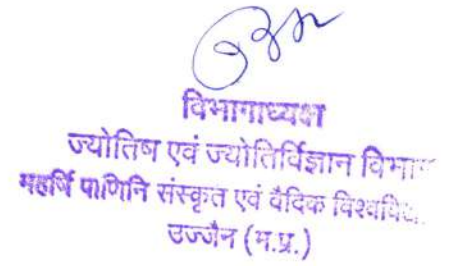 विभागाध्यक्ष
ज्योतिष एवं ज्योतिर्विज्ञान
महर्षि पाणिनि संस्कृत एवं वैदिक
उज्जैन (म.प्र.)